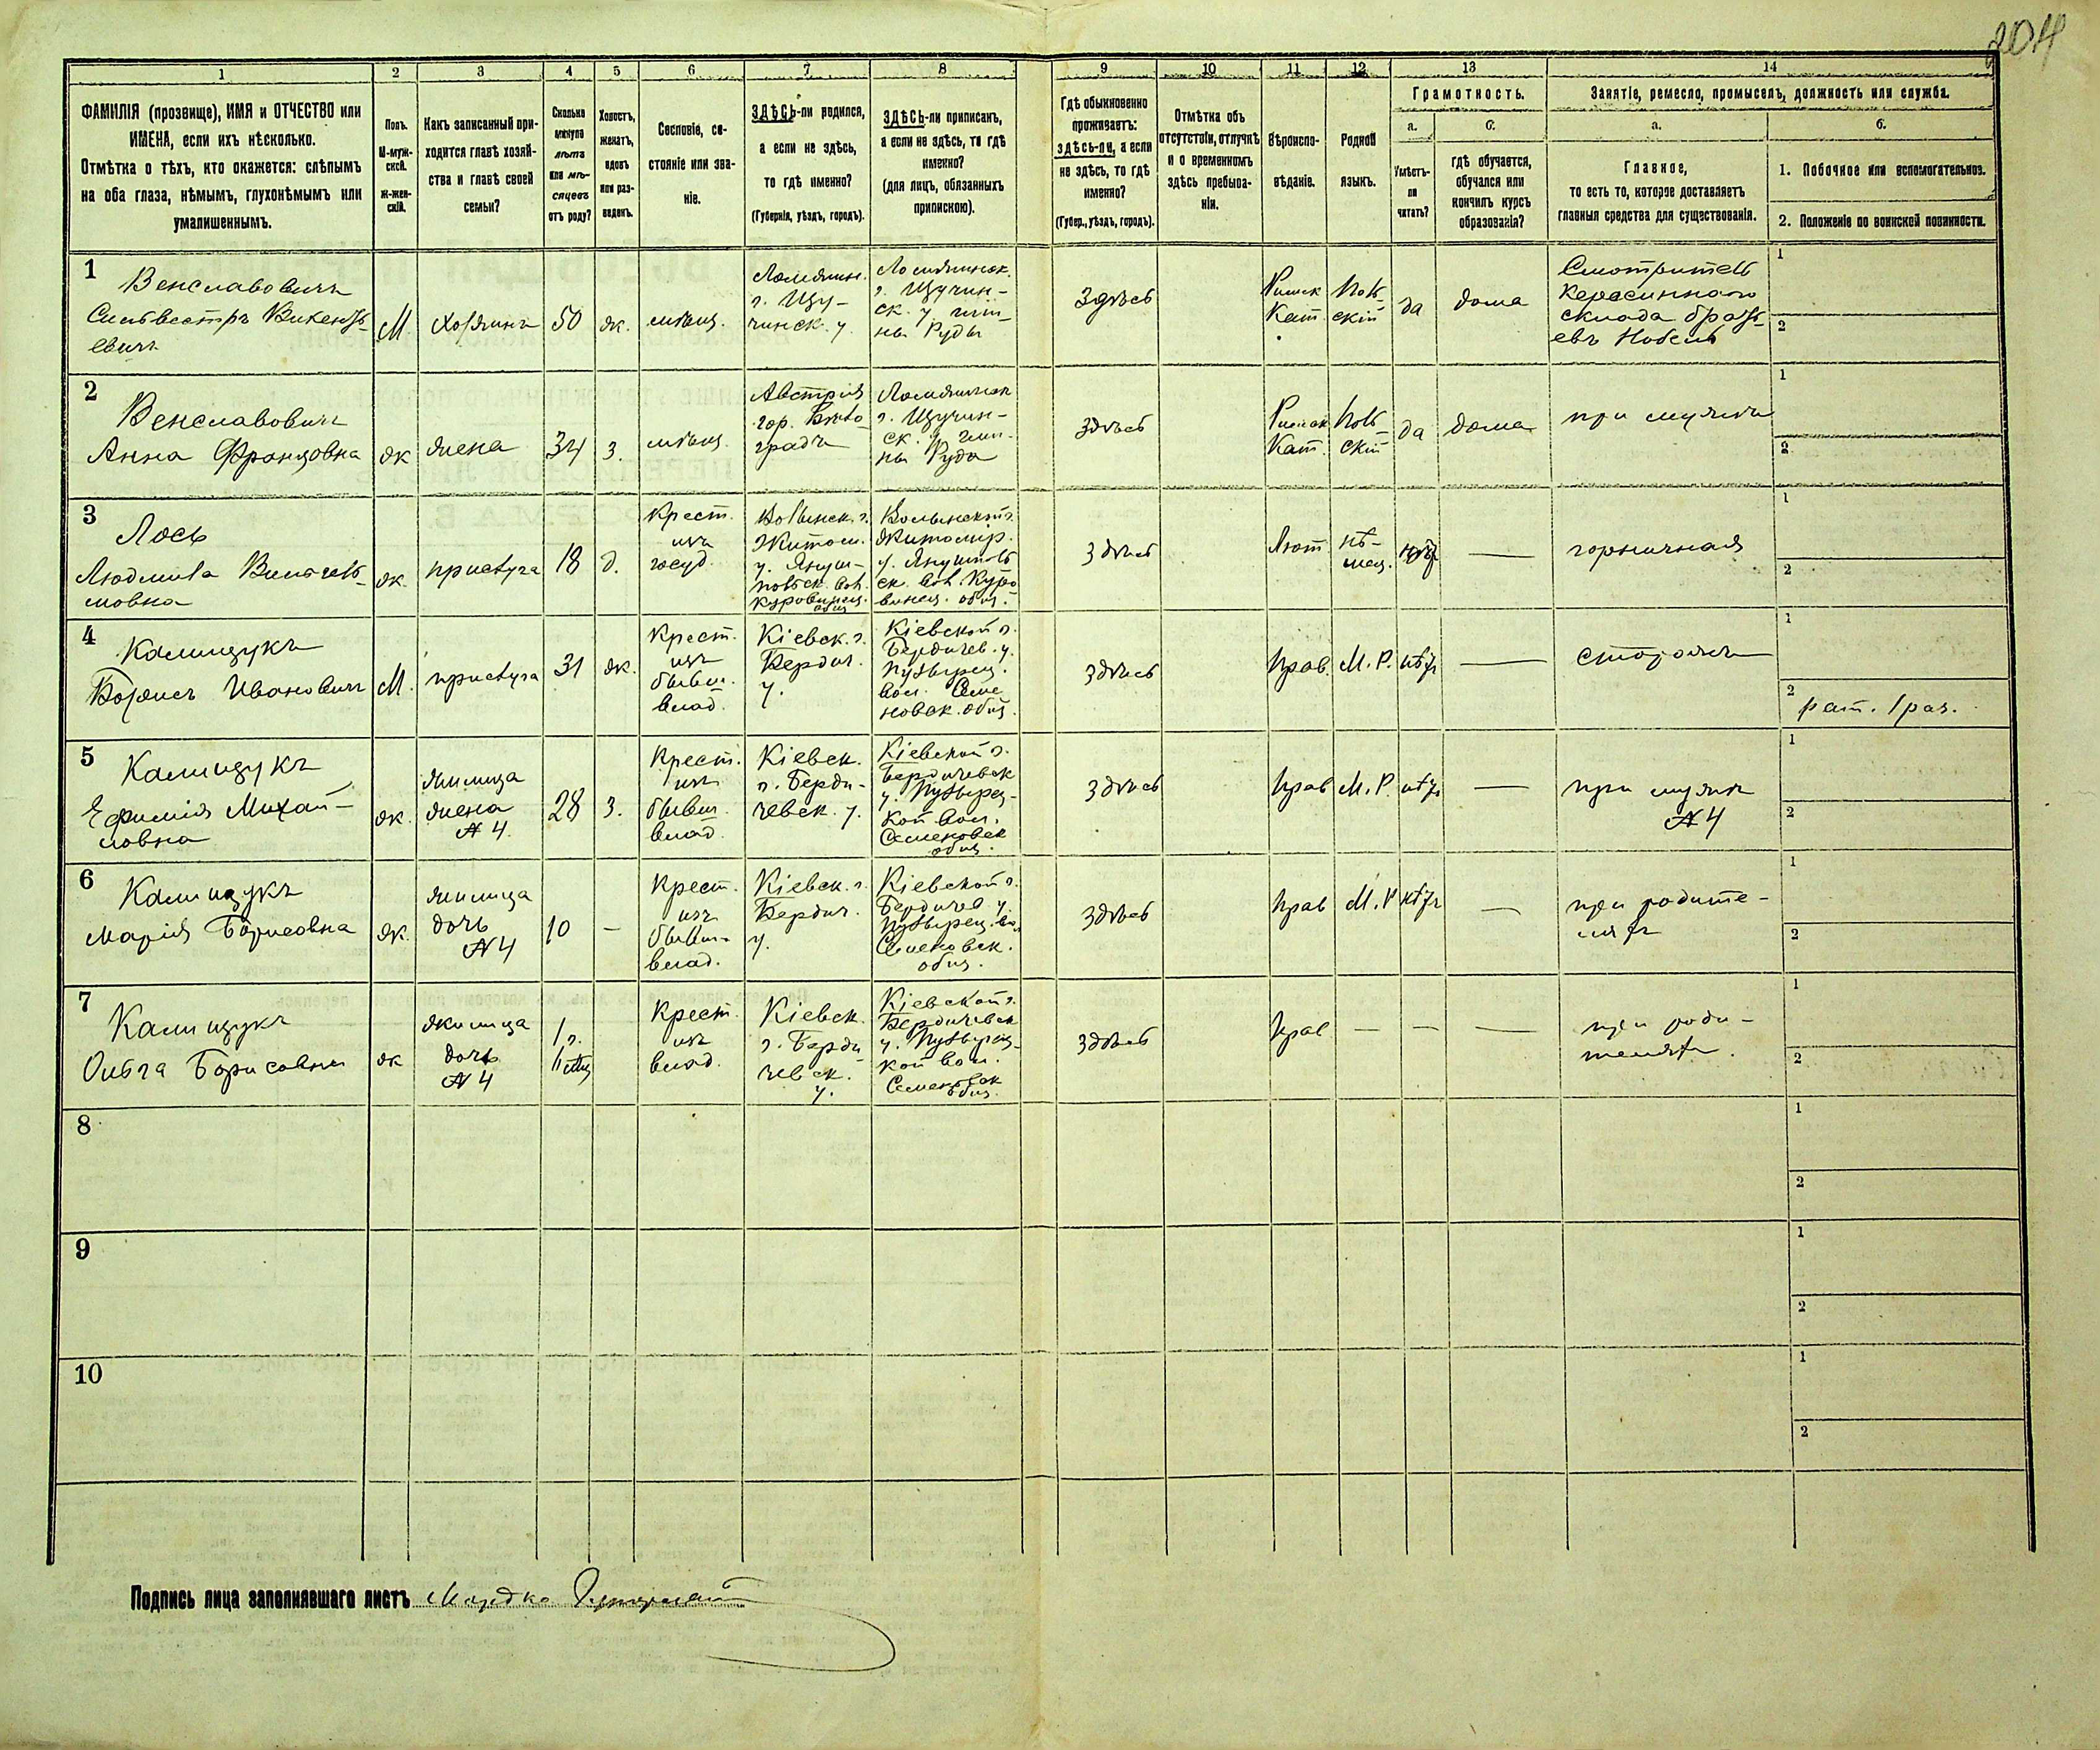 204
1 2 3 4 5 6 7 8 9 10 11 12 13 14
ФАМИЛІЯ (прозвище), ИМЯ и ОТЧЕСТВО или
ИМЕНА, если ихъ нѣсколько.
Отмѣтка о тѣхъ, кто окажется: слѣпымъ
на оба глаза, нѣмымъ, глухонѣмымъ или
умалишеннымъ.
Полъ.
М-муж-
ской.
Ж-жен-
скій.
Какъ записанный при-
ходится главѣ хозяй-
ства и главѣ своей
семьи?
Сколько
минуло
лѣтъ
или мѣ-
сяцевъ
отъ роду?
Холостъ,
женатъ,
вдовъ
или раз-
веденъ.
Сословіе, со-
стояніе или зва-
ніе.
ЗДѢСЬ-ли родился,
а если не здѣсь,
то гдѣ именно?
(Губернія, уѣздъ, городъ).
ЗДѢСЬ-ли приписанъ,
а если не здѣсь, то гдѣ
именно?
(для лицъ, обязанныхъ
припискою).
Гдѣ обыкновенно
проживаетъ:
здѣсь-ли, а если
не здѣсь, то гдѣ
именно?
(Губер., уѣздъ, городъ).
Отмѣтка объ
отсутствіи, отлучкѣ
и о временномъ
здѣсь пребыва-
ніи.
Вѣроиспо-
вѣданіе.
Родной
языкъ.
Грамотность.
а.
Умѣетъ-
ли
читать?
б.
гдѣ обучается,
обучался или
кончилъ курсъ
образованія?
Занятіе, ремесло, промыселъ, должность или служба.
а.
Главное,
то есть то, которое доставляетъ
главныя средства для существованія.
б.
1. Побочное или вспомогательное.
2. Положеніе по воинской повинности.
1
Венславовичъ
Сильвестръ Викентъ-
евичъ
М.
хозяинъ
50
ж.
мѣщ.
Ломжин.
г. Щу-
чинск. у.
Ломжинск.
г. Щучин-
ск. у. гми-
ны Руды
Здѣсь
Римск
Кат.
Поль-
скій
да
дома
Смотритель
Керасиннаго
склада брать-
евъ Нобель
1
2
2
Венславовичъ
Анна Францовна
ж
жена
34
з.
мѣщ.
Австрія
гор.
градъ
Ломжинск
г. Щучин-
ск. у. гми-
ны Руда
Здѣсь
Римск
Кат.
Поль-
скій
да
дома
при мужѣ
1
2
3
Лось
Людмила Вильгель-
мовна
ж.
прислуга
18
д.
Крест.
изъ
госуд.
Волынск. г.
Житом.
у. Януш-
польск. вол.
Куровинец.
общ
Волынской г.
Житомір.
у. Янушполь
ск. вол. Куро
винец. общ.
Здѣсь
Лют.
нѣ-
мец.
нѣтъ
—
горничная
1
2
4
Калищукъ
Борисъ Ивановичъ
М.
прислуга
31
ж.
Крест.
изъ
бывш.
влад.
Кіевск. г.
Бердич.
у.
Кіевской г.
Бердичев. у.
Пузырец.
вол. Семе
новск. общ.
Здѣсь
Прав.
М. Р.
нѣтъ
—
сторожъ
1
2
рат. 1 раз.
5
Калищукъ
Ефимія Михай-
ловна
ж.
жилица
жена
№ 4.
28
з.
Крест.
изъ
бывш.
влад.
Кіевск.
г. Берди-
чевск. у.
Кіевской г.
Бердичевск
у. Пузырец-
кой вол.
Семеновск
общ.
Здѣсь
Прав
М. Р.
нѣтъ
—
при мужѣ
№ 4
1
2
6
Калищукъ
Марія Борисовна
ж.
жилица
дочь
№ 4
10
—
Крест.
изъ
бывш.
влад.
Кіевск. г.
Бердич.
у.
Кіевской г.
Бердичев у.
Пузырец. вол
Семеновск.
общ.
Здѣсь
Прав
М. Р
нѣтъ
—
при родите-
ляхъ
1
2
7
Калищукъ
Ольга Борисовна
ж
жилица
дочь
№ 4
1 г.
Крест.
изъ
влад.
Кіевск.
г. Берди
чевск.
у.
Кіевской г.
Бердичевск
у. Пузырец-
кой вол.
Семеновск
общ.
Здѣсь
Прав
— — —
при роди-
теляхъ.
1
2
8
1
2
9
1
2
10
1
2
Подпись лица заполнявшаго листъ